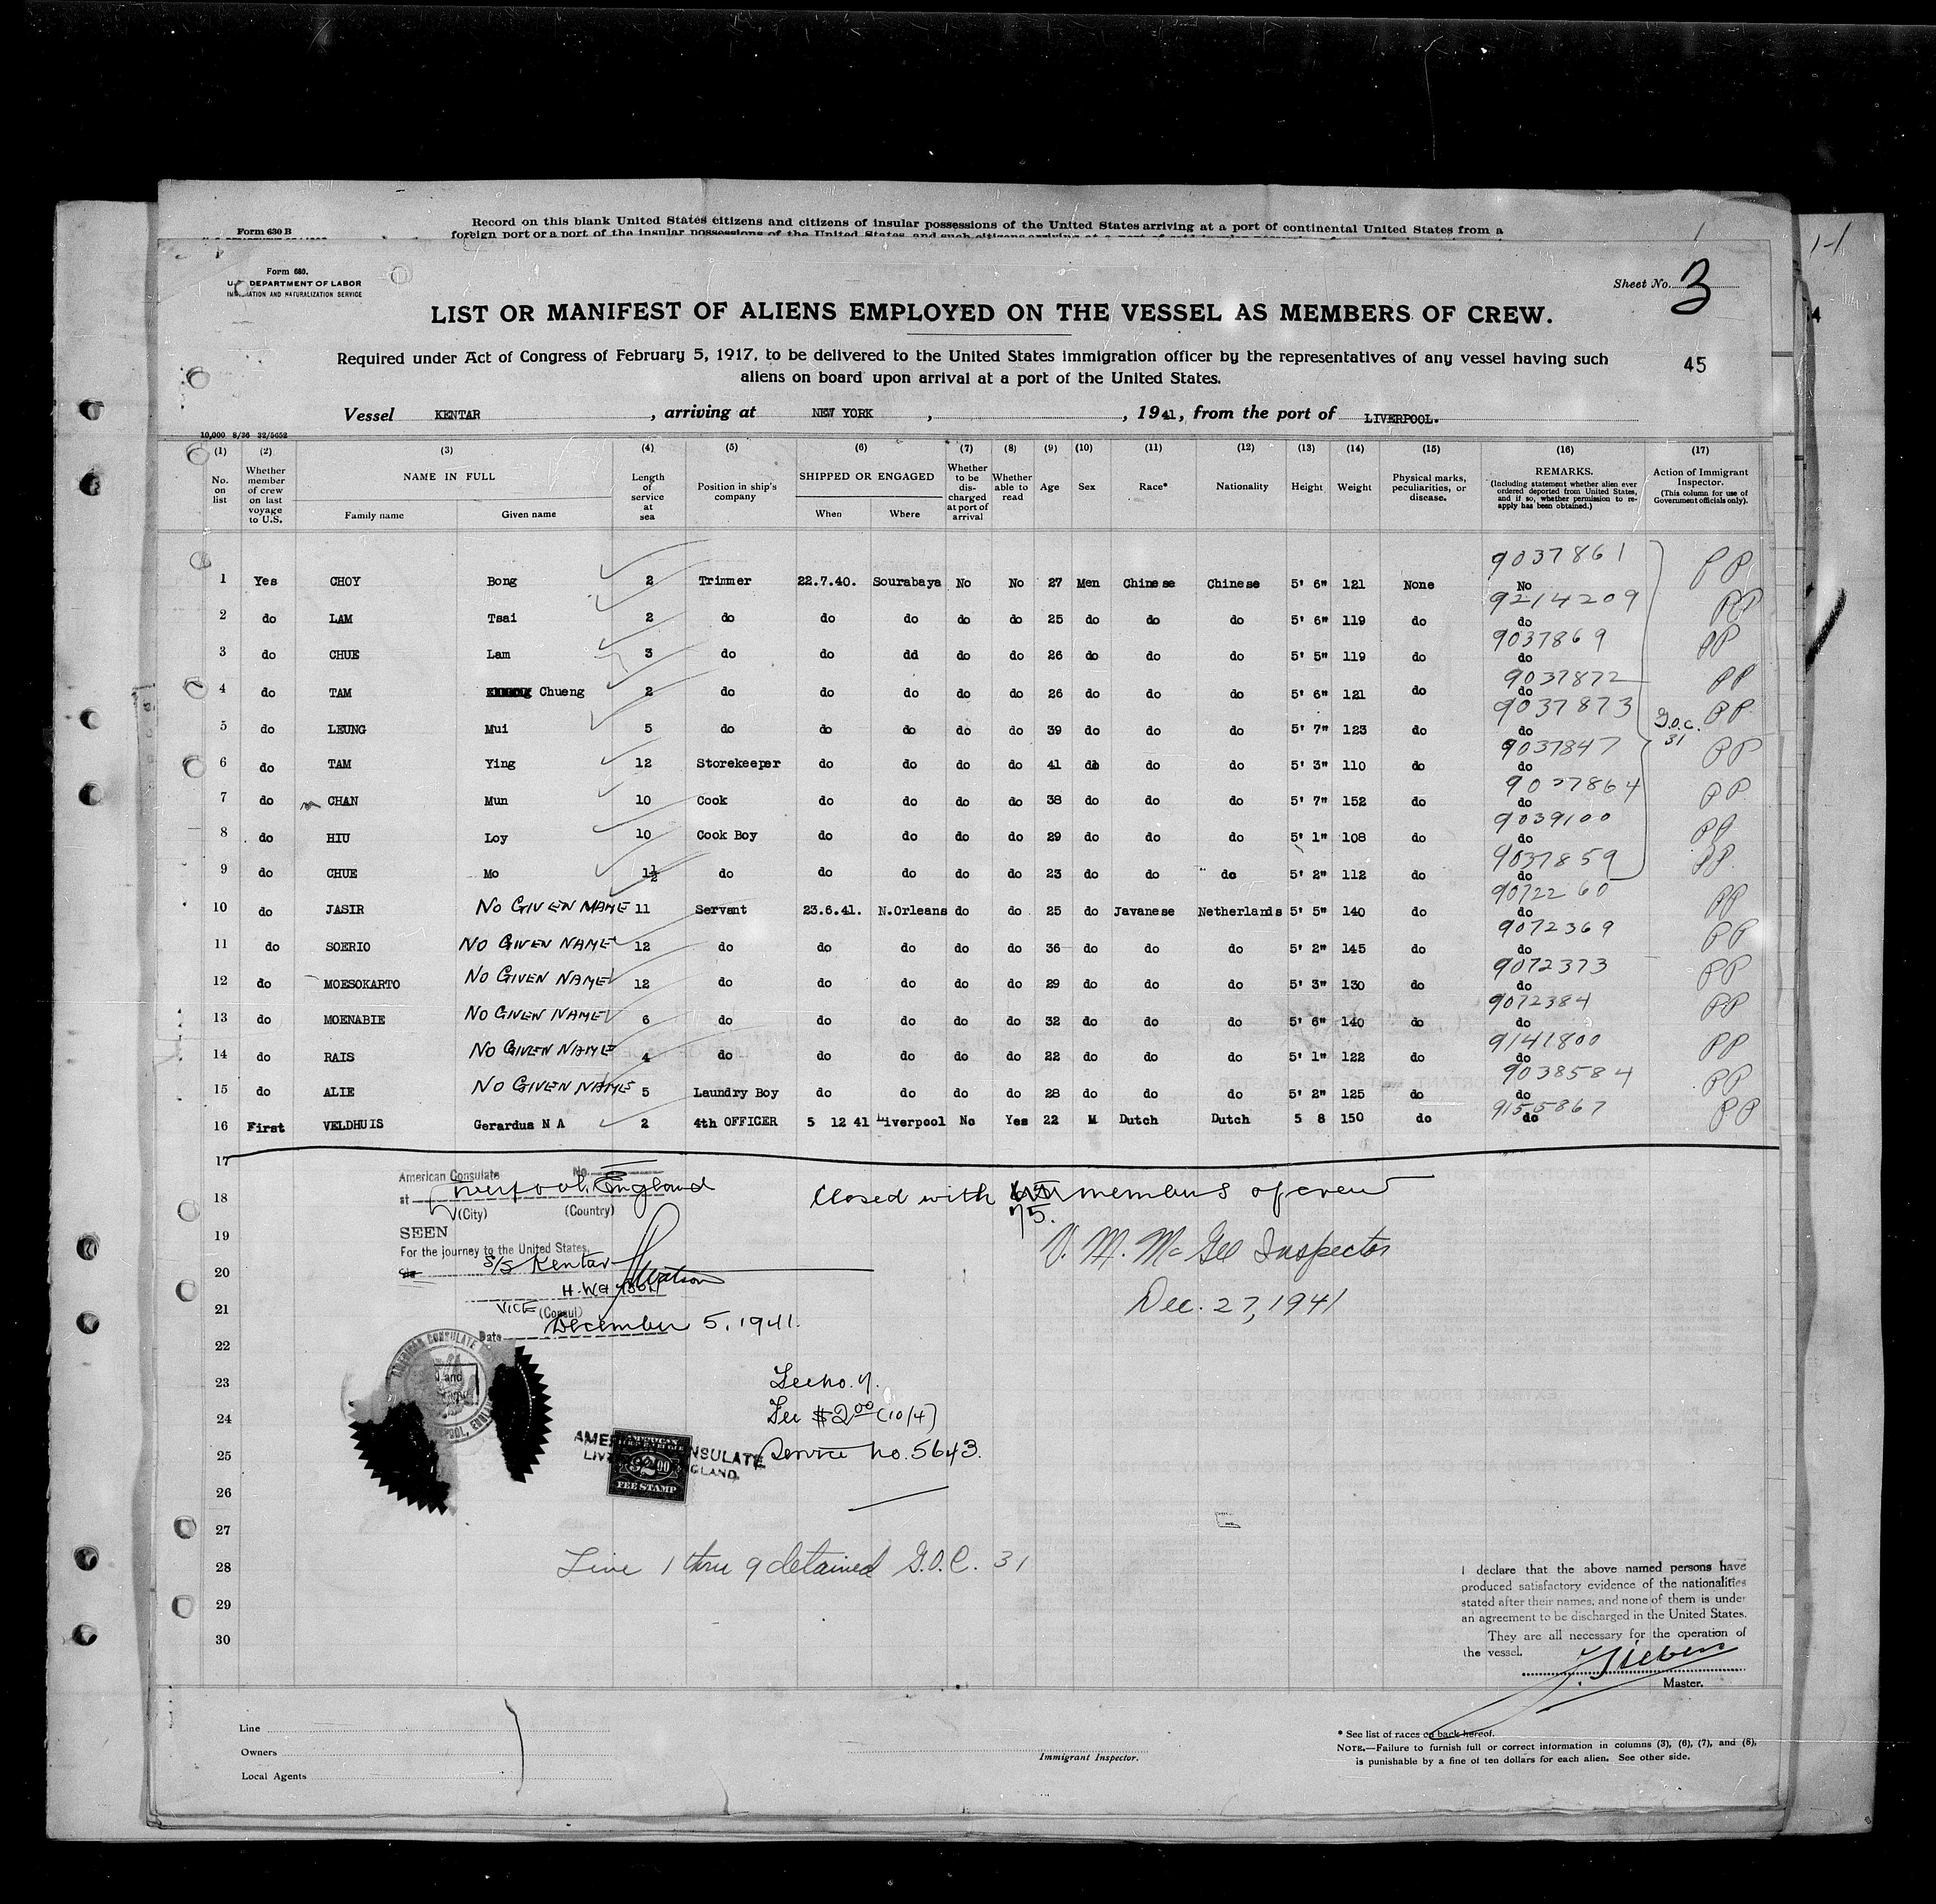 Form 630 B
Record on this blank United States citizens and citizens of insular possessions of the United States arriving at a port of continental United States from a
foreign port or a port of the insular possessions of the United States, and such citizens arriving at a port of
Form 680.
U.S. DEPARTMENT OF LABOR
IMMIGRATION AND NATURALIZATION SERVICE
Sheet No. 3
LIST OR MANIFEST OF ALIENS EMPLOYED ON THE VESSEL AS MEMBERS OF CREW.
Required under Act of Congress of February 5, 1917, to be delivered to the United States immigration officer by the representatives of any vessel having such
aliens on board upon arrival at a port of the United States.
45
Vessel KENTAR, arriving at NEW YORK, , 1941, from the port of LIVERPOOL.
10,000 8/36 32/5652
(1) (2) (3) (4) (5) (6) (7) (8) (9) (10) (11) (12) (13) (14) (15) (16) (17)
No. on list
Whether member of crew on last voyage to U.S.
NAME IN FULL
Family name
Given name
Length of service at sea
Position in ship's company
SHIPPED OR ENGAGED
When
Where
Whether to be discharged at port of arrival
Whether able to read
Age
Sex
Race*
Nationality
Height
Weight
Physical marks, peculiarities, or disease.
REMARKS.
(Including statement whether alien ever ordered deported from United States, and if so, whether permission to re-apply has been obtained.)
Action of Immigrant Inspector.
(This column for use of Government officials only).
9037861
1 Yes CHOY Bong 2 Trimmer 22.7.40. Sourabaya No No 27 Men Chinese Chinese 5' 6" 121 None No PP
9214209
2 do LAM Tsai 2 do do do do do 25 do do do 5' 6" 119 do do PP
9037869
3 do CHUE Lam 3 do do dd do do 26 do do do 5' 5" 119 do do PP
9037872
4 do TAM Chueng 2 do do do do do 26 do do do 5' 6" 121 do do PP
9037873
5 do LEUNG Mui 5 do do do do do 39 do do do 5' 7" 123 do do G.O.C. 31 PP
9037847
6 do TAM Ying 12 Storekeeper do do do do 41 do do do 5' 3" 110 do do PP
9037864
7 do CHAN Mun 10 Cook do do do do 38 do do do 5' 7" 152 do do PP
9039100
8 do HIU Loy 10 Cook Boy do do do do 29 do do do 5' 1" 108 do do PP
9037859
9 do CHUE Mo 1½ do do do do do 23 do do do 5' 2" 112 do do PP
9072260
10 do JASIR NO GIVEN NAME 11 Servant 23.6.41. N.Orleans do do 25 do Javanese Netherlands 5' 5" 140 do do PP
9072369
11 do SOERIO NO GIVEN NAME 12 do do do do do 36 do do do 5' 2" 145 do do PP
9072373
12 do MOESOKARTO NO GIVEN NAME 12 do do do do do 29 do do do 5' 3" 130 do do PP
9072384
13 do MOENABIE NO GIVEN NAME 6 do do do do do 32 do do do 5' 6" 140 do do PP
9141800
14 do RAIS NO GIVEN NAME 4 do do do do do 22 do do do 5' 1" 122 do do PP
9038584
15 do ALIE NO GIVEN NAME 5 Laundry Boy do do do do 28 do do do 5' 2" 125 do do PP
9155867
16 First VELDHUIS Gerardus N A 2 4th OFFICER 5 12 41 Liverpool No Yes 22 M Dutch Dutch 5 8 150 do do PP
17
American Consulate No.
18
at Liverpool, England
(City) (Country)
Closed with members of crew
75.
19
SEEN
For the journey to the United States.
V. M. McGee Inspector
S/S Kentar
20
H. Watson
21
VICE (Consul)
Dec. 27, 1941
Date December 5, 1941.
22
AMERICAN CONSULATE
LIVERPOOL, ENGLAND
23
Fee $2.00 (10/4)
24
AMERICAN CONSULATE
LIVERPOOL, ENGLAND.
$2.00
FEE STAMP
Service No. 5643.
25
26
27
28
Line 1 thru 9 detained G.O.C. 31
29
30
I declare that the above named persons have
produced satisfactory evidence of the nationalities
stated after their names, and none of them is under
an agreement to be discharged in the United States.
They are all necessary for the operation of
the vessel.
Master.
Line
Owners
Local Agents
Immigrant Inspector.
* See list of races on back hereof.
NOTE.—Failure to furnish full or correct information in columns (3), (6), (7), and (8),
is punishable by a fine of ten dollars for each alien. See other side.